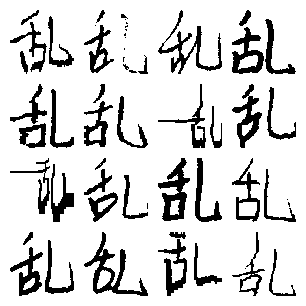 乱乱乱乱
乱乱乱乱
乱乱乱乱
乱乱乱乱